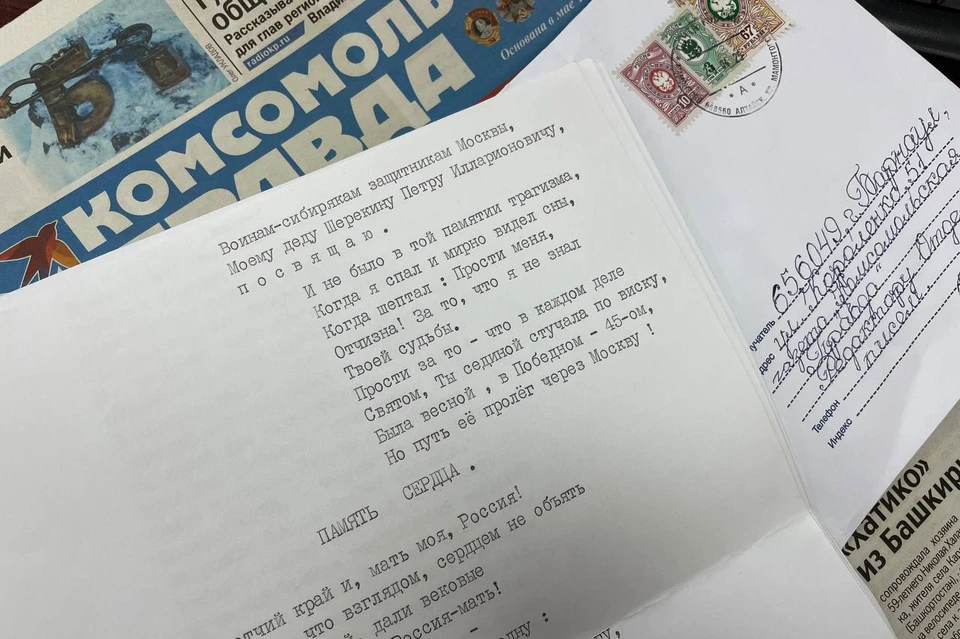 Рассказыва
для глав регион
Владими
radiokp.ru
Олег УКЛАДОВ
КОМСОМОЛЬ
ПРАВДА
Основана в мае
Воинам-сибирякам защитникам Москвы,
Моему деду Шерекину Петру Илларионовичу,
п о с в я щ а ю .
И не было в той памяти трагизма,
Когда я спал и мирно видел сны,
Когда шептал : Прости меня,
Отчизна! За то, что я не знал
Твоей судьбы.
Прости за то - что в каждом деле
Святом, Ты сединой стучала по виску,
Была весной , в Победном - 45-ом,
Но путь её пролёг через Москву !
ПАМЯТЬ СЕРДЦА .
тчий край и, мать моя, Россия!
что взглядом, сердцем не объять
дали вековые
Россия-мать!
дну :
10
67
* А *
658560 АЛТАЙСК
МАМОНТО
лучатель 656049, г. Барнаул,
дрес ул. Короленко. 51
газета "Комсомольская
Правда"
Редактору Отдела
писем
Телефон
Индекс
«ХАТИКО»
ИЗ Башкири
сопровождала хозяина
59-летнего Николая Хале
ва, жителя села Кара
(Башкортостан),
на велосипеде
села К